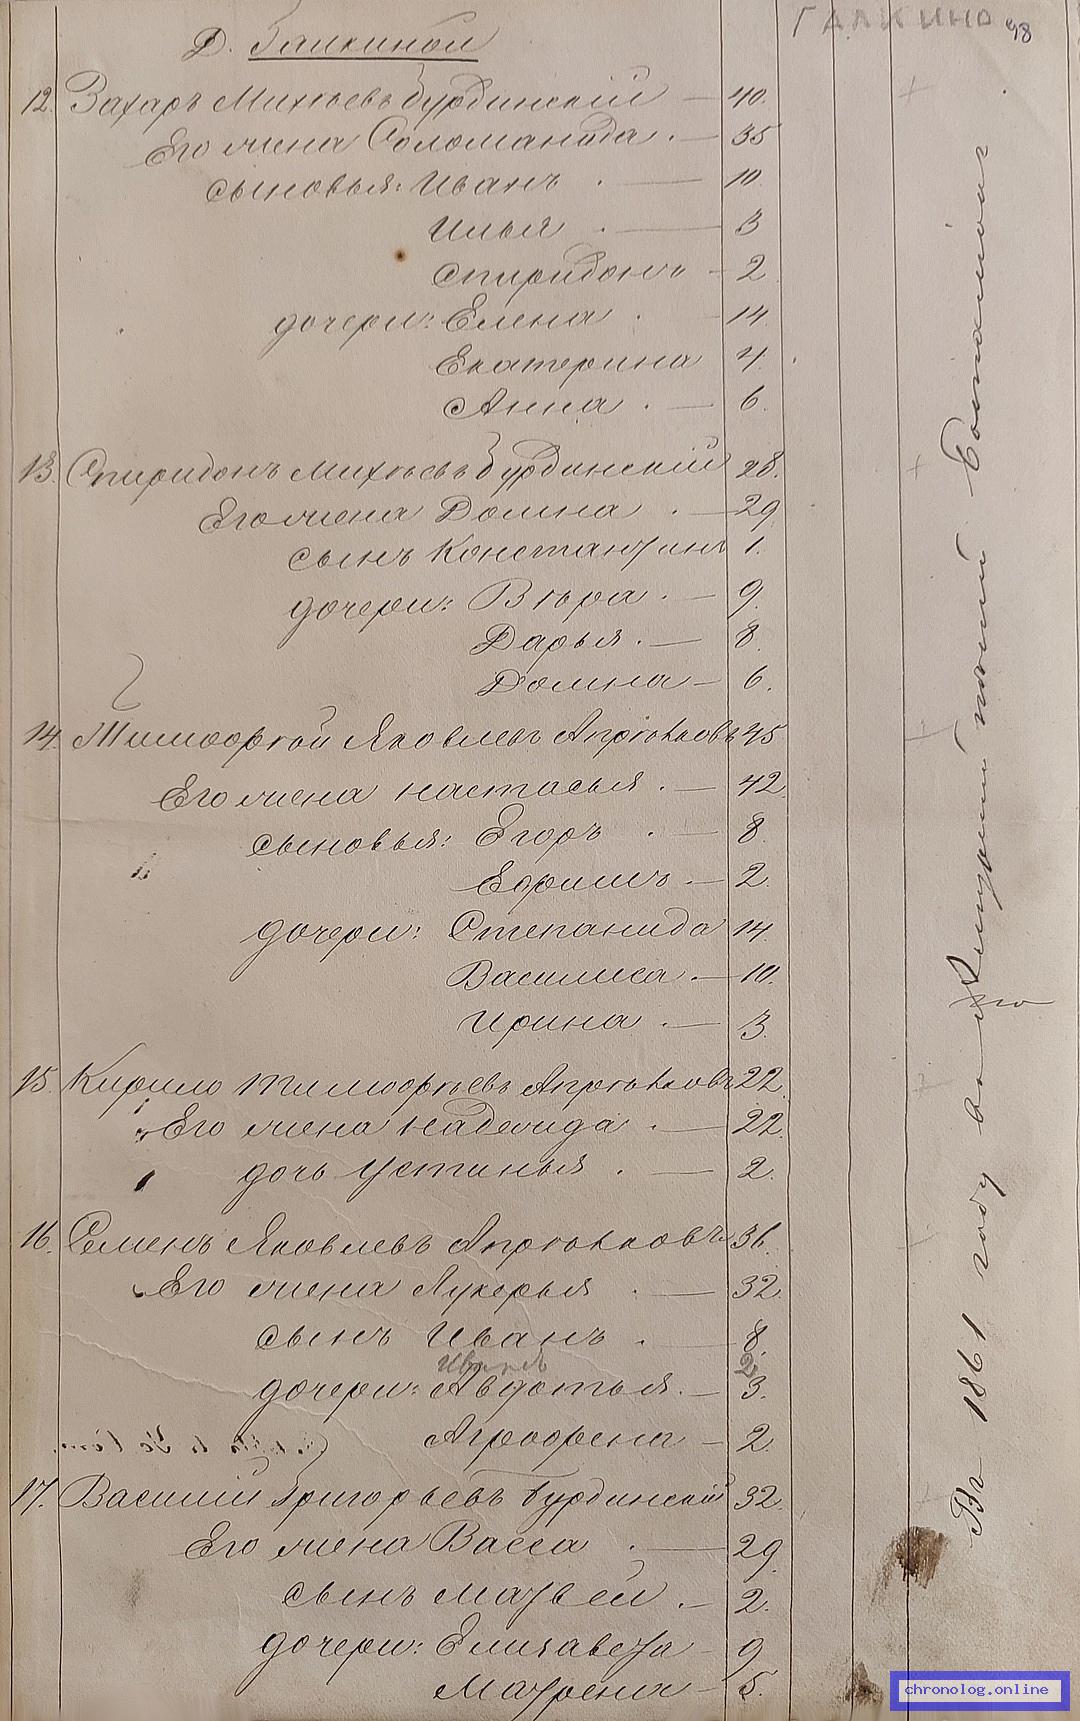 ГАЛКИНО
98
Д. Галкиной
12. Захаръ Михѣевъ Бурдинскій — 40.
Его жена Соломанида . — 35
сыновья: Иванъ . — 10
Илья . — 3
Спиридонъ — 2
дочери: Елена . 14
Екатерина 4.
Анна . — 6.
13. Спиридонъ Михѣевъ Бурдинскій 28.
Его жена Домна . — 29
сынъ Константинъ 1.
дочери: Вѣра . — 9.
Дарья . — 8.
Домна — 6.
14. Тимофѣй Яковлевъ Апрѣлковъ 45
Его жена Настасья . — 42
сыновья: Егоръ . — 8
Ефимъ . — 2.
дочери: Степанида 14.
Василиса . — 10.
Ирина . — 3.
15. Кирило Тимофѣевъ Апрѣлковъ 22
Его жена Надежда . — 22.
дочь Устинья . — 2.
16. Семенъ Яковлевъ Апрѣлковъ 36.
Его жена Лукерья . — 32.
сынъ Иванъ . — 8.
2
дочери: Авдотья . — 3.
Агрофена — 2.
17. Василий Григорьевъ Бурдинскій 32.
Его жена Васса . — 29.
сынъ Матвей . — 2.
дочери: Елизавета — 9
Матрена — 5.
Въ 1861 году въ Амурский пеший баталион
chronolog.online